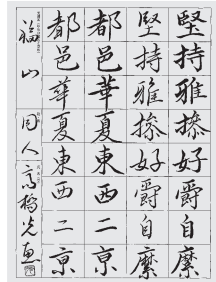 堅持雅操好爵自縻
堅持雅操好爵自縻
都邑華夏東西二亰
都邑華夏東西二亰
福山 同人 高橋光恵